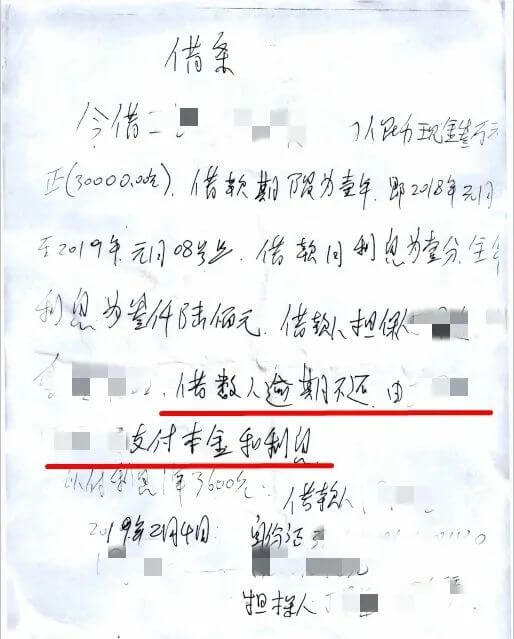 借条
今借
人民币现金叁万元
正(30000.00元).借款期限为壹年.即2018年元月
至2019年元月08号止.借款月利息为壹分.全年
利息为叁仟陆佰元.借款人担保人
借款人逾期不还.由
支付本金和利息.
以付利息1年3600元.
借款人
2019年2月4日 身份证
担保人